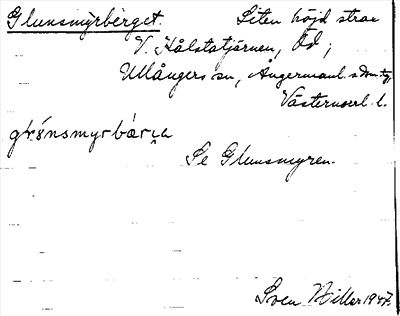 Glunsmyrberget. Liten höjd strax
V. Hålstatjärnen, Öd;
Ullångers sn, Ångermanl. s. dom. tg,
Västernorrl. l.
Se Glunsmyren.
Sven Hiller 1947.